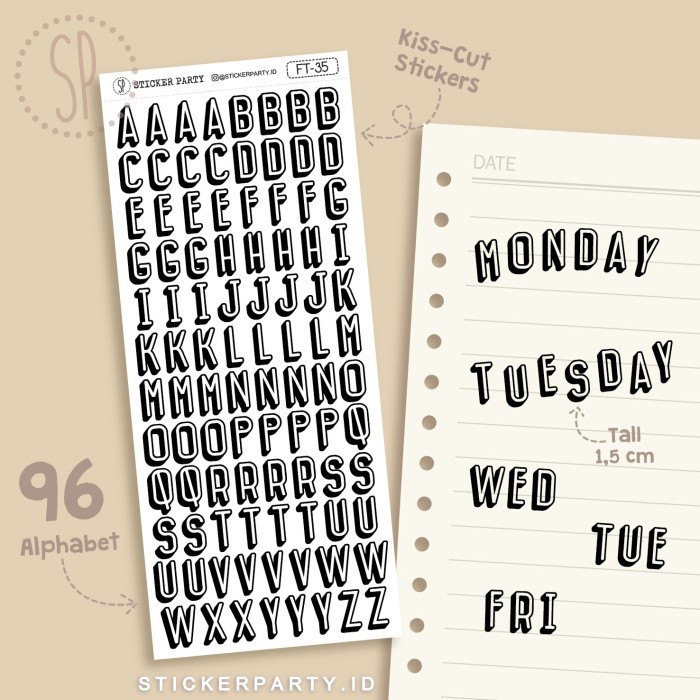 SP
Kiss-Cut
Stickers
SP STICKER PARTY @STICKERPARTY.ID FT-35
AAAABBBB
CCCCDDDD
EEEEFFFG
GGGHHHHI
IIIJJJJK
KKKLLLLM
MMMNNNNO
OOOPPPPQ
QQRRRRSS
SSTTTTUU
UUVVVVWW
WXXYYYZZ
96
Alphabet
DATE
MONDAY
TUESDAY
Tall
1,5 cm
WED
TUE
FRI
STICKERPARTY.ID